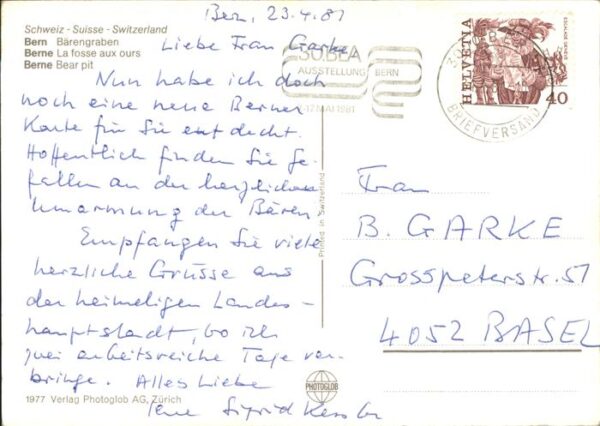 Bern, 23.4.81
Schweiz - Suisse - Switzerland
Bern Bärengraben
Berne La fosse aux ours
Berne Bear pit
Liebe Frau Garke
Nun habe ich doch
noch eine neue Berner
Karte für Sie entdeckt.
Hoffentlich finden Sie Ge-
fallen an der herzlichen
Umarmung der Bären.
Empfangen Sie viele
herzliche Grüsse aus
der heimeligen Landes-
hauptstadt, wo ich
zwei arbeitsreiche Tage ver-
bringe. Alles Liebe
Ihre Sigrid Kessler
1977 Verlag Photoglob AG, Zürich
30. BEA
AUSSTELLUNG BERN
MAI 1981
BRIEFVERSAND
HELVETIA
40
Printed in Switzerland
PHOTOGLOB
Frau
B. GARKE
Grosspeterstr. 51
4052 BASEL